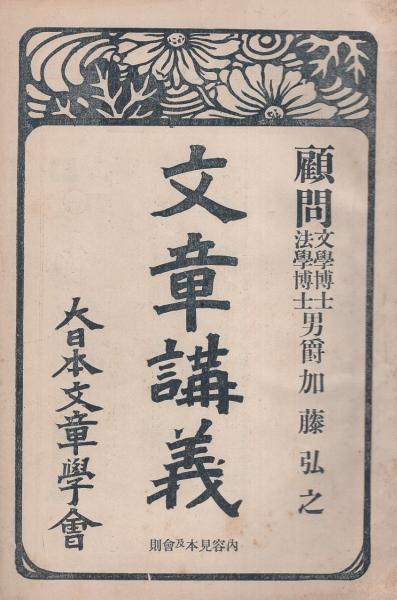 顧問文學博士法學博士男爵加藤弘之
文章講義
大日本文章學會
內容見本及會則